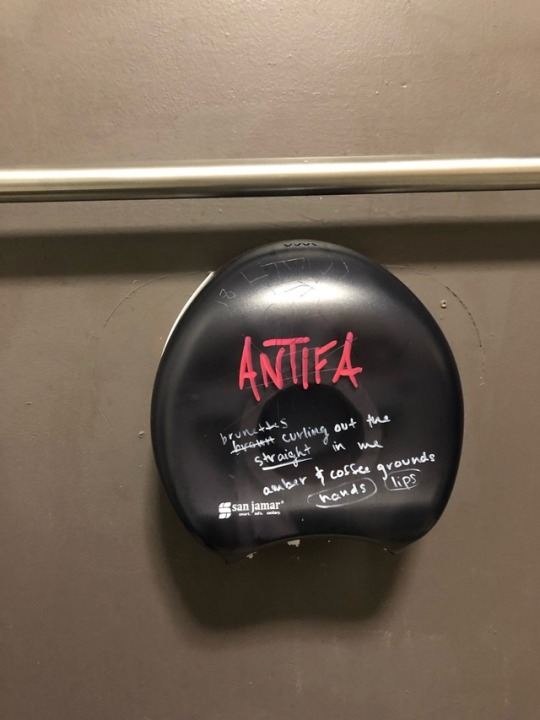 ANTIFA
brunettes
curling out the
straight in me
amber & coffee grounds
hands lips
san jamar®